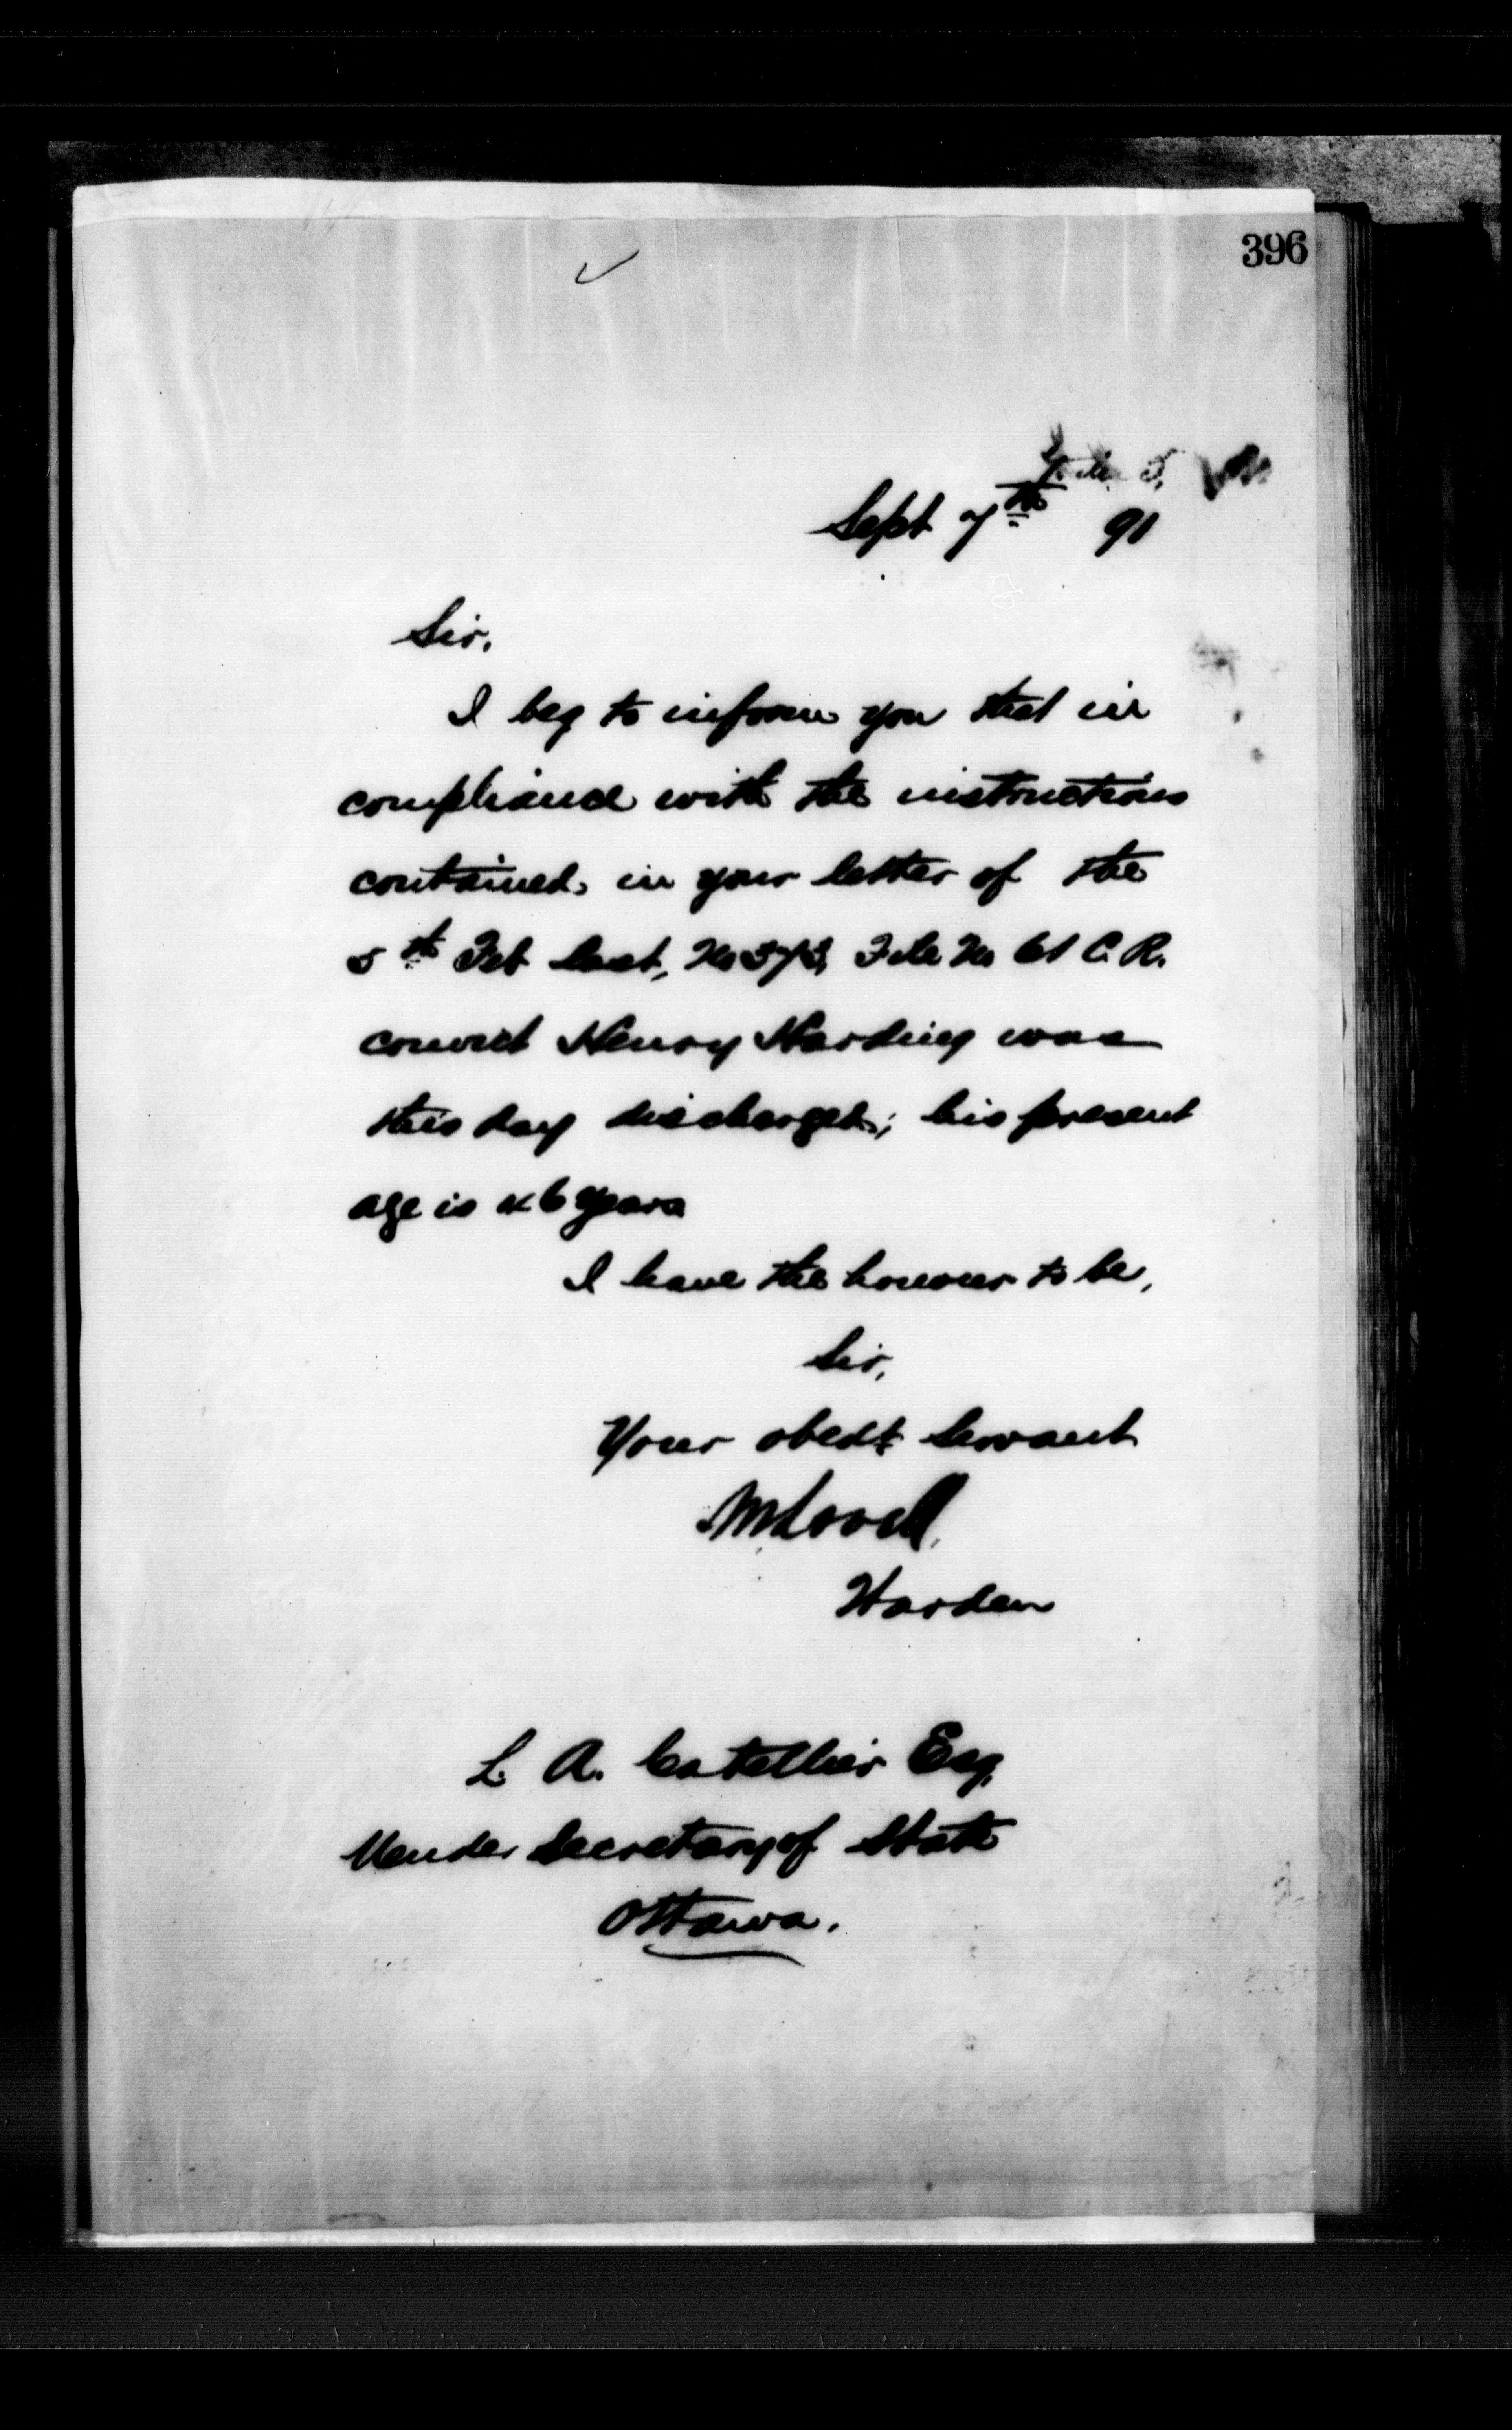 396
Sept 7th 91
Sir,
I beg to inform you that in
compliance with the instructions
contained in your letter of the
5th Feb last, No 373, File No 61 C. R.
convict Henry Harding was
this day discharged; his present
age is 46 years
I have the honour to be,
Sir,
Your obedt Servant
M Lavell,
Warden
L. A. Catellier Esq,
Under Secretary of State
Ottawa.